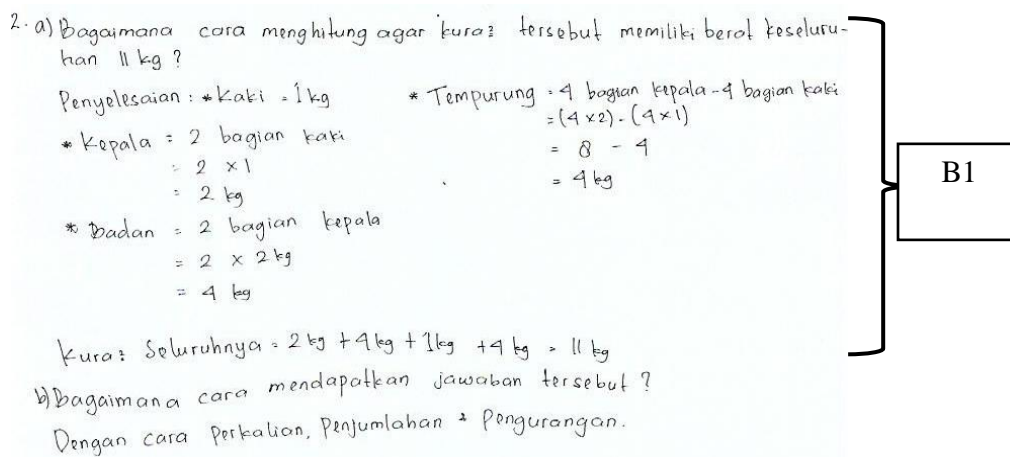 2. a) Bagaimana cara menghitung agar kura2 tersebut memiliki berat keseluru-
han 11 kg ?
Penyelesaian : * Kaki = 1 kg
* Kepala = 2 bagian kaki
= 2 × 1
= 2 kg
* Badan = 2 bagian kepala
= 2 × 2 kg
= 4 kg
* Tempurung = 4 bagian kepala - 4 bagian kaki
= (4 × 2) - (4 × 1)
= 8 - 4
= 4 kg
Kura2 Seluruhnya = 2 kg + 4 kg + 1 kg + 4 kg = 11 kg
b) Bagaimana cara mendapatkan jawaban tersebut ?
Dengan cara Perkalian, Penjumlahan 2 Pengurangan.
B1